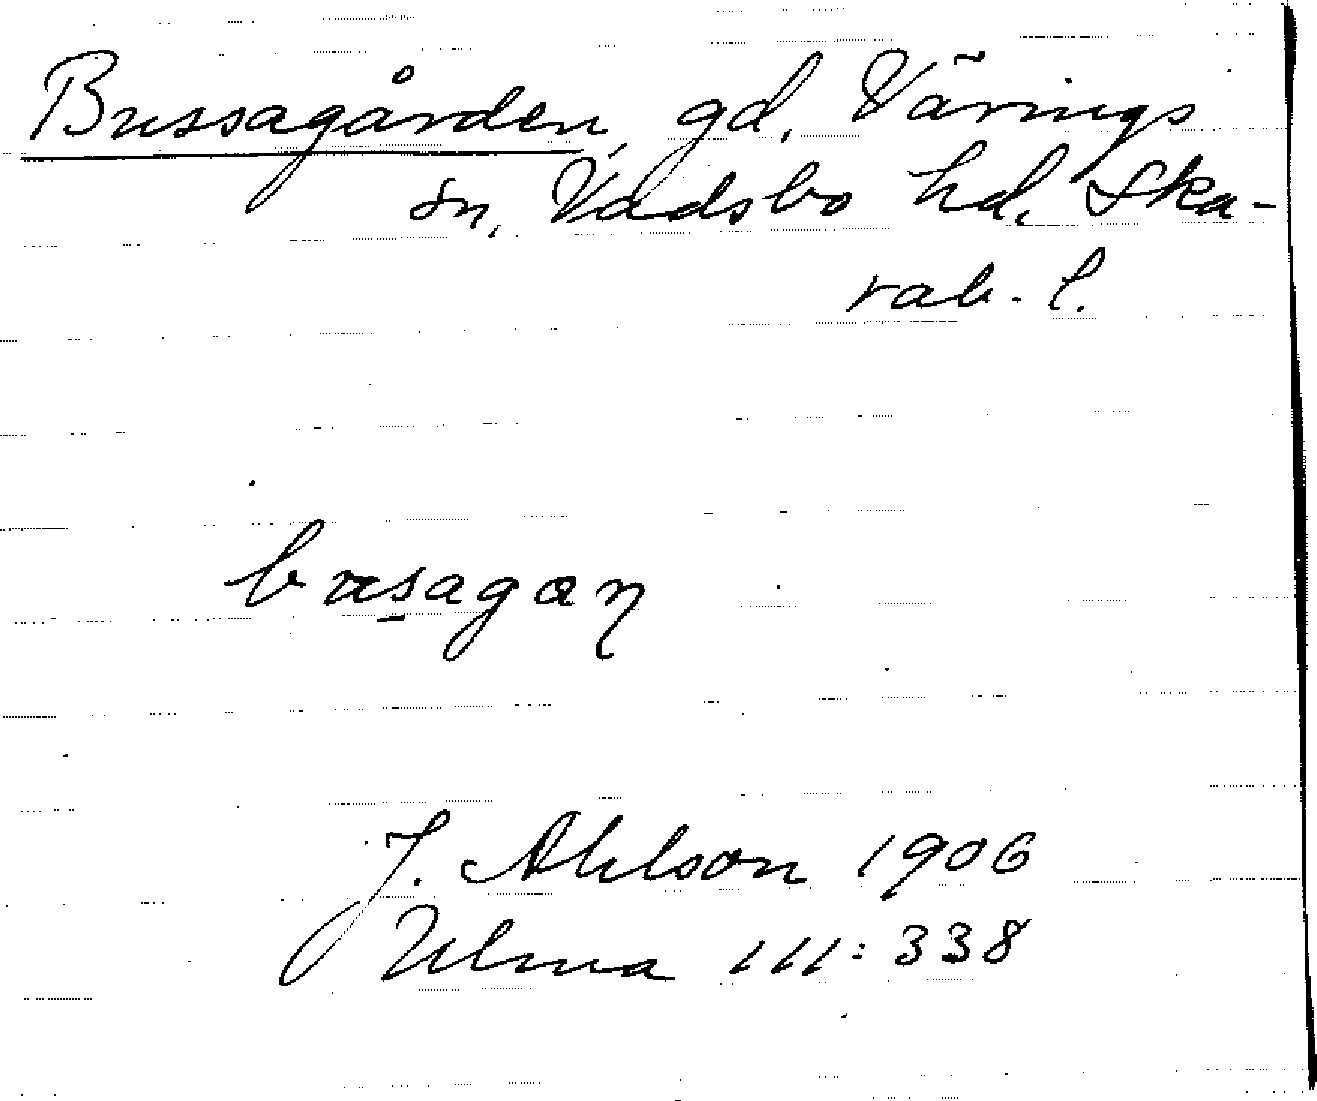 Bussagården, gd, Värings
sn, Vadsbo hd, Ska-
rab. l.
busagan
J. Ahlson 1906
Ulma 111:338